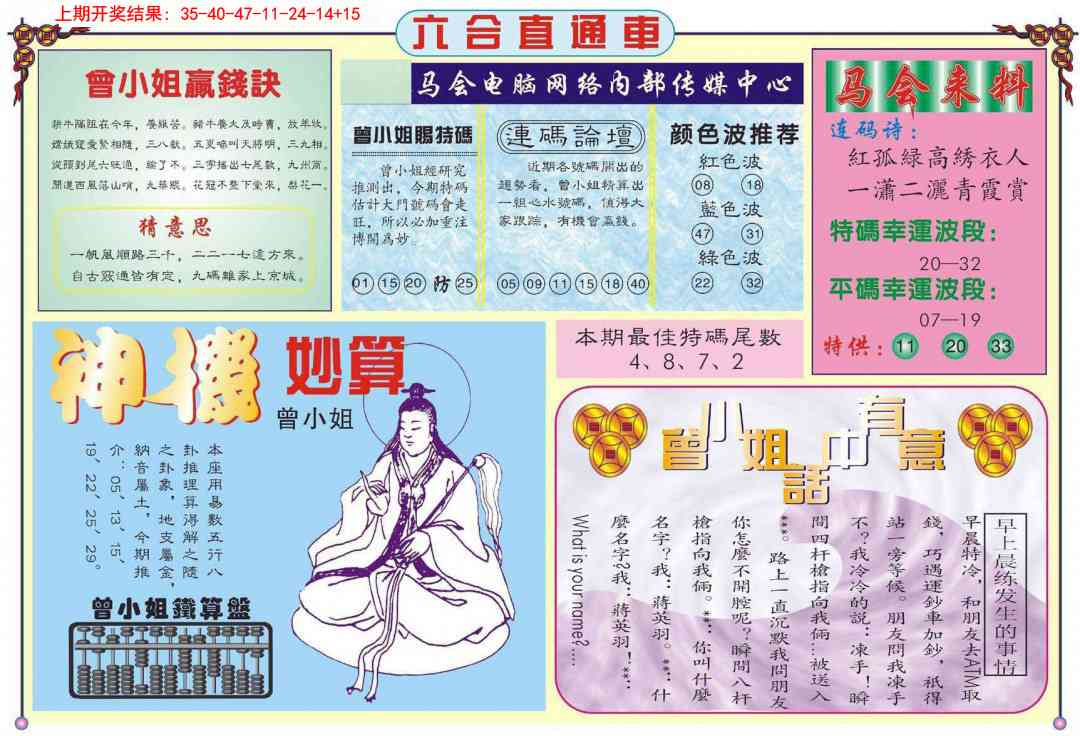 上期开奖结果: 35-40-47-11-24-14+15
六合直通車
曾小姐贏錢訣
猜意思
一帆風順路三千，二二一七遠方來。
自古窮通皆有定，九碼離家上京城。
马会电脑网络内部传媒中心
曾小姐賜特碼
曾小姐經研究
推測出，今期特碼
估計大門號碼會走
旺，所以必加重注
博開為妙
01 15 20 防 25
連碼論壇
近期各號碼開出的
趨勢看，曾小姐精算出
一組心水號碼，值得大
家跟踪，有機會贏錢。
05 09 11 15 18 40
颜色波推荐
紅色波
08 18
藍色波
47 31
綠色波
22 32
马会来料
连码诗：
紅孤緑高綉衣人
一瀟二灑青霞賞
特碼幸運波段：
20—32
平碼幸運波段：
07—19
特供： 11 20 33
神機妙算
曾小姐
本座用易數五行八
卦推理算得解之隨
之卦象，地支屬金，
納音屬土，今期推
介：05、13、15、
19、22、25、29。
曾小姐鐵算盤
本期最佳特碼尾數
4、8、7、2
曾小姐話中有意
早上晨练发生的事情
早晨特冷，和朋友去ATM取
錢，巧遇運鈔車加鈔，祇得
站一旁等候。朋友問我凍手
不？我冷冷的說：凍手！瞬
間四杆槍指向我倆…被送入
***。路上一直沉默我問朋友
你怎麼不開腔呢？瞬間八杆
槍指向我倆。**：你叫什麼
名字？我：蔣英羽。**：什
麼名字?我：蔣英羽！**：
What is your name?....